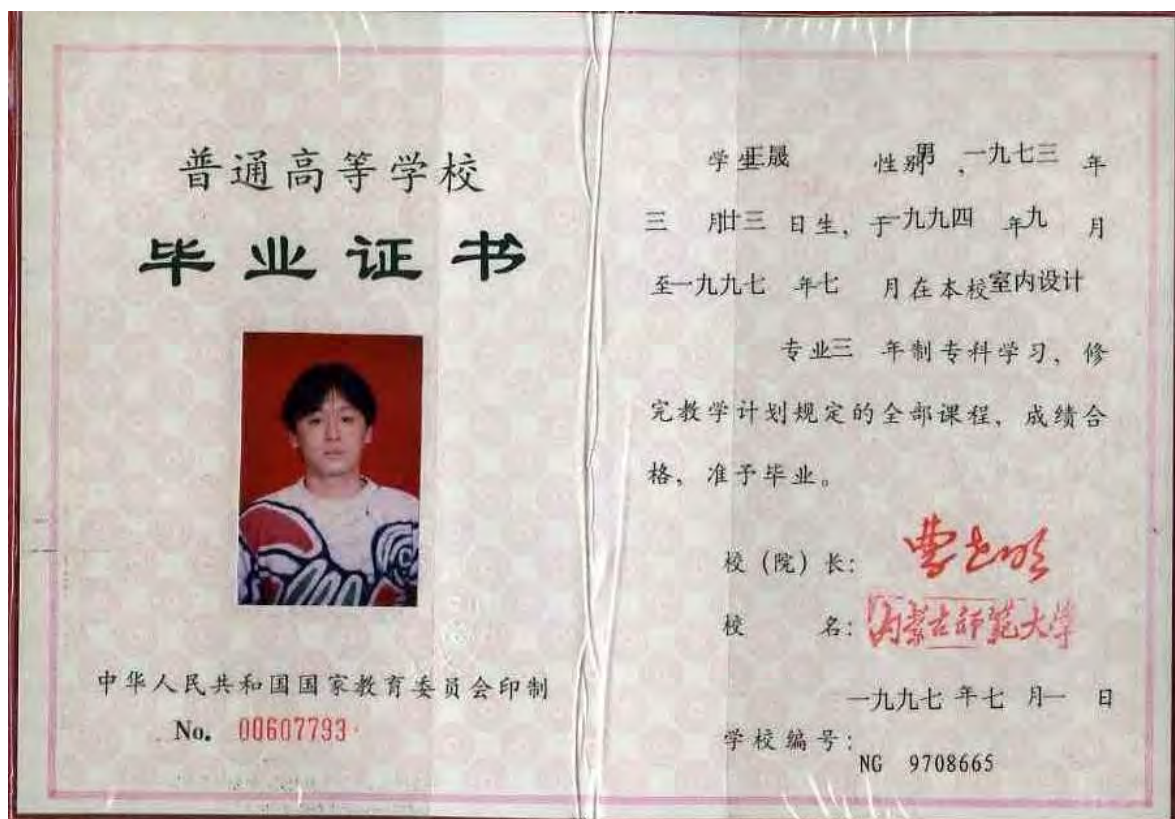 普通高等学校
毕业证书
中华人民共和国国家教育委员会印制
No. 00607793
学生 晟 性别男，一九七三年
三月廿三日生，于一九九四年九月
至一九九七年七月在本校室内设计
专业三年制专科学习，修
完教学计划规定的全部课程，成绩合
格，准予毕业。
校（院）长：
校名：内蒙古师范大学
一九九七年七月一日
学校编号：
NG 9708665